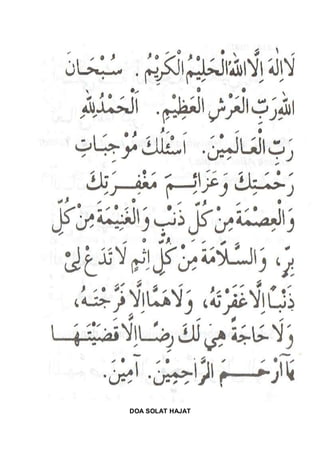 لَا إِلٰهَ إِلَّا اللهُ الْحَلِيْمُ الْكَرِيْمُ . سُبْحَانَ
اللهِ رَبِّ الْعَرْشِ الْعَظِيْمِ . اَلْحَمْدُ لِلّٰهِ
رَبِّ الْعَالَمِيْنَ. اَسْئَلُكَ مُوْجِبَاتِ
رَحْمَتِكَ وَعَزَائِمَ مَغْفِرَتِكَ
وَالْعِصْمَةَ مِنْ كُلِّ ذَنْبٍ وَالْغَنِيْمَةَ مِنْ كُلِّ
بِرٍّ، وَالسَّلَامَةَ مِنْ كُلِّ اِثْمٍ لَا تَدَعْ لِيْ
ذَنْبًا اِلَّا غَفَرْتَهُ، وَلَا هَمًّا اِلَّا فَرَّجْتَهُ،
وَلَا حَاجَةً هِيَ لَكَ رِضًا اِلَّا قَضَيْتَهَا
يَا اَرْحَمَ الرَّاحِمِيْنَ. آمِيْنَ.
DOA SOLAT HAJAT